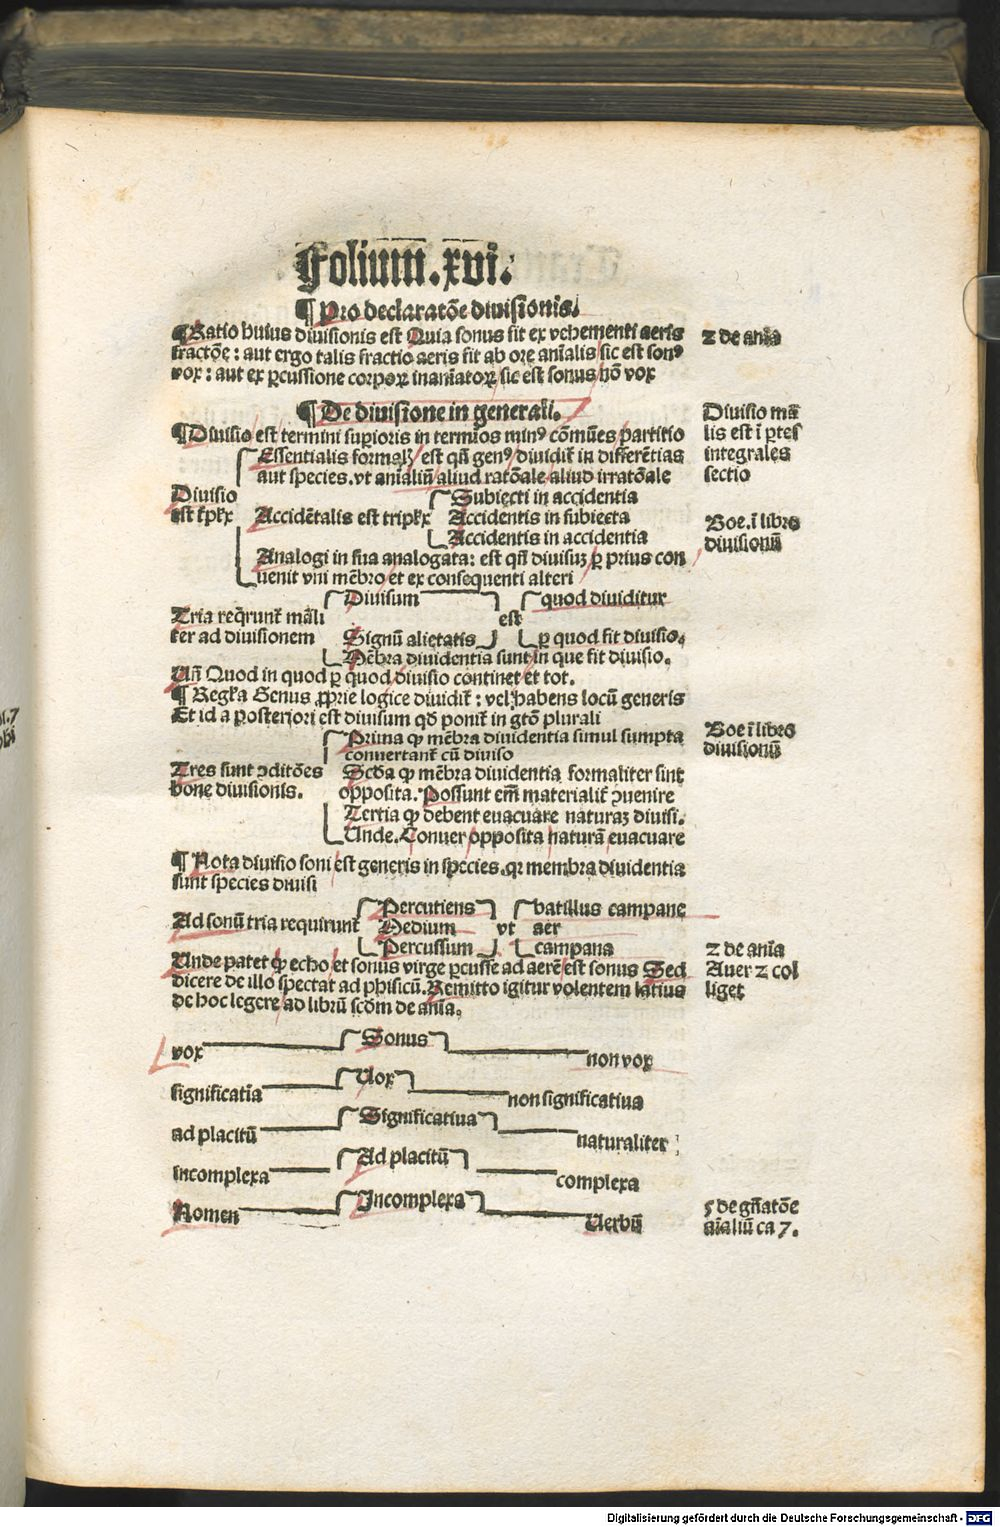 Folium.xvi.
¶ Pro declaratōe diuisionis.
¶ Ratio huius diuisionis est Quia sonus fit ex vehementi aeris
fractōe: aut ergo talis fractio aeris fit ab ore anīalis sic est sonꝰ
vox: aut ex ꝑcussione corporꝝ inanīatorꝝ sic est sonus nō vox
2 de anīa
¶ De diuisione in generali.
¶ Diuisio est termini suꝑioris in termīos minꝰ cōmūes partitio
Diuisio mā
lis est ī ꝑtes
integrales
sectio
Essentialis formalꝭ est qn̄ genꝰ diuidit̄ in differētias
aut species. vt anīaliū aliud ratōale aliud irratōale
Diuisio
est
Subiecti in accidentia
Accidētalis est
Accidentis in subiecta
Accidentis in accidentia
Boe. ī libro
diuisionū
Analogi in sua analogata: est qn̄ diuisuꝫ ꝑ prius con
uenit vni mēbro et ex consequenti alteri
Tria reqͥrunt̄ māli
ter ad diuisionem
Diuisum
Signū alietatis
est
quod diuiditur
ꝑ quod fit diuisio.
Mēbra diuidentia sunt in que fit diuisio.
Un̄ Quod in quod ꝑ quod diuisio continet et tot.
¶ Genus ꝓprie logice diuidit̄: vel habens locū generis
Et id a posteriori est diuisum qd̄ ponit̄ in gtō plurali
Tres sunt ꝯditōes
bone diuisionis.
Prima ꝙ mēbra diuidentia simul sumpta
conuertant̄ cū diuiso
Scd̄a ꝙ mēbra diuidentia formaliter sint
opposita. Possunt em̄ materialit̄ ꝯuenire
Tertia ꝙ debent euacuare naturaꝫ diuisi.
Unde. Conuer opposita naturā euacuare
Boe ī libro
diuisionū
¶ Nota diuisio soni est generis in species. qꝛ membra diuidentia
sunt species diuisi
Ad sonū tria requirunt̄
Percutiens
Medium
Percussum
vt
batillus campane
aer
campana
Unde patet ꝙ echo et sonus virge ꝑcusse ad aerē est sonus Sed
dicere de illo spectat ad phisicū. Remitto igitur volentem latius
de hoc legere ad librū scd̄m de anīa.
2 de anīa
Auer 2 col
liget
Sonus
vox
non vox
Uox
significatīa
non significatiua
Significatiua
ad placitū
naturaliter
Ad placitū
incomplexa
complexa
Incomplexa
Nomen
Uerbū
5 de gn̄atōe
aīaliū ca 7.
Digitalisierung gefördert durch die Deutsche Forschungsgemeinschaft - DFG